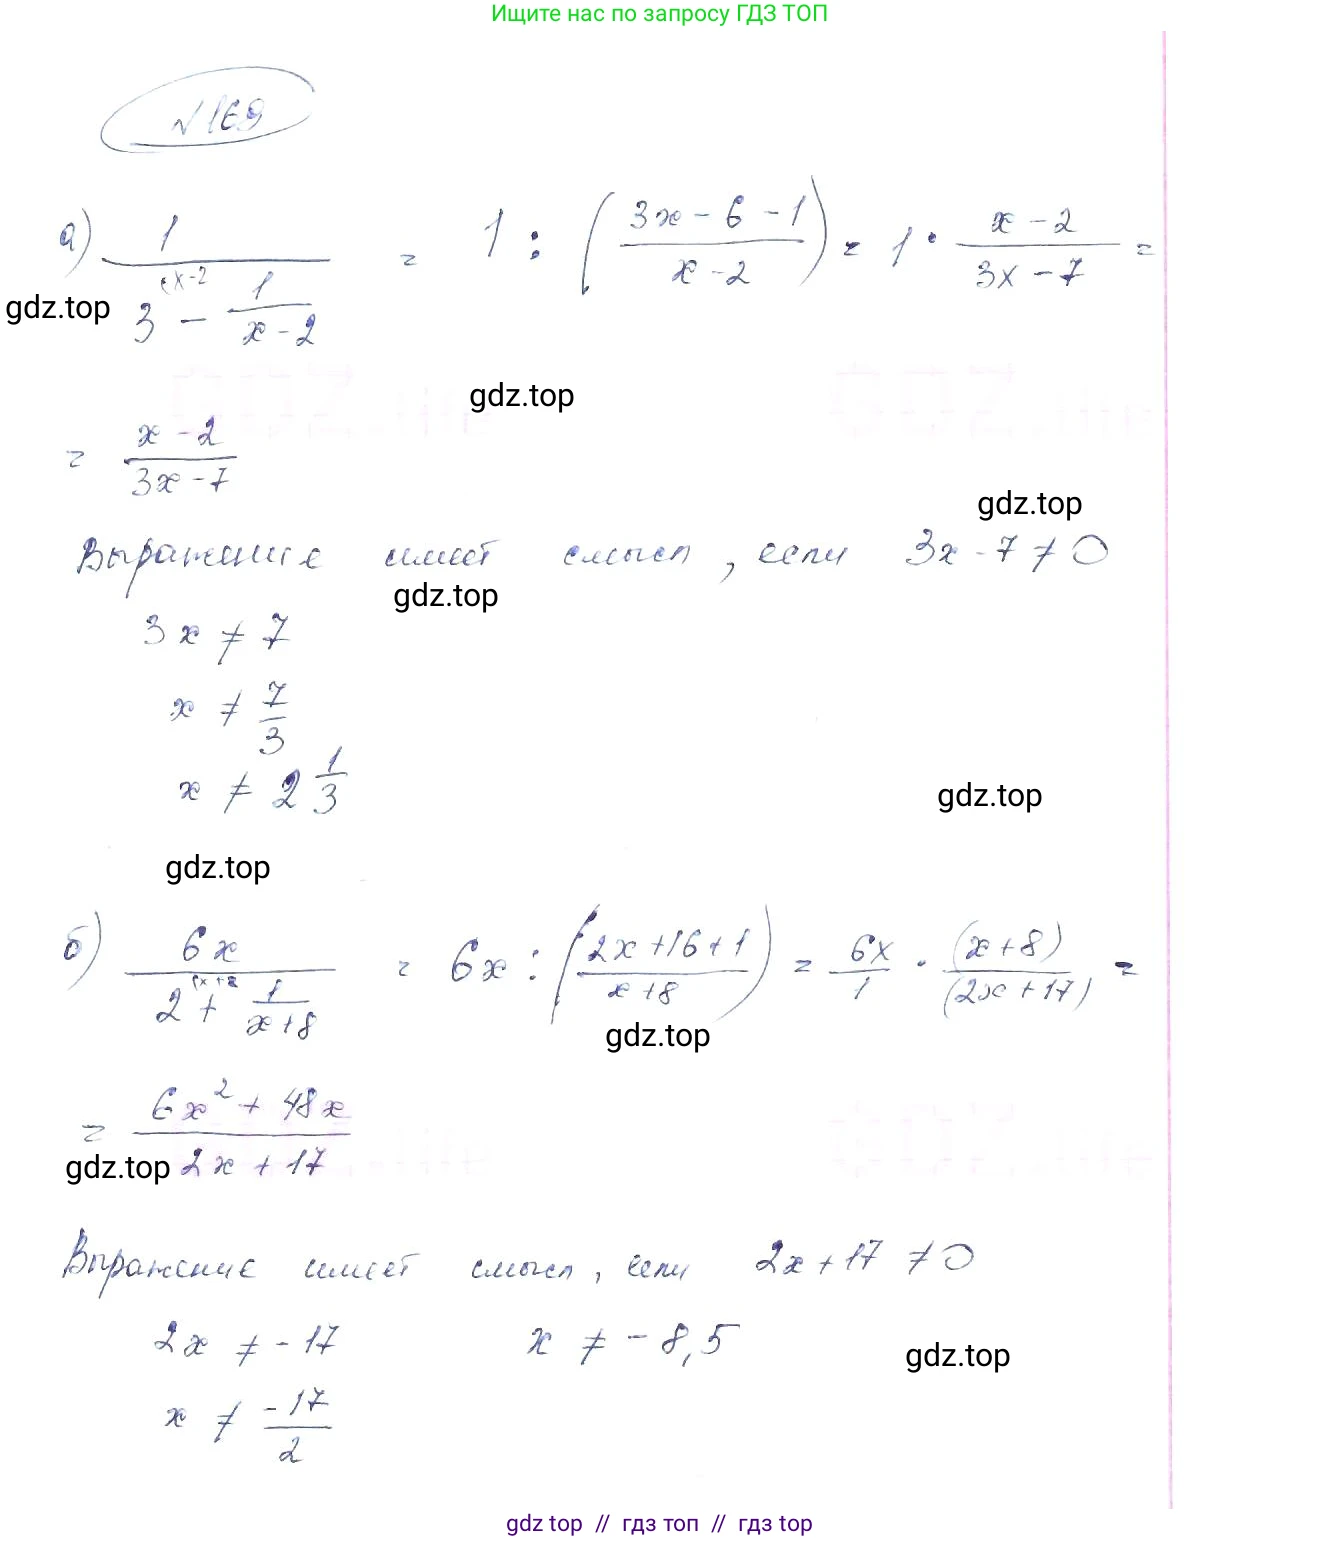 Ищите нас по запросу ГДЗ ТОП
№169
а) 1/(3 - 1/(x-2)) = 1 : ((3x-6-1)/(x-2)) = 1 · (x-2)/(3x-7) =
(x-2
gdz.top
gdz.top
= (x-2)/(3x-7)
gdz.top
Выражение имеет смысл, если 3x-7≠0
gdz.top
3x ≠ 7
x ≠ 7/3
x ≠ 2 1/3
gdz.top
gdz.top
б) 6x/(2 + 1/(x+8)) = 6x : ((2x+16+1)/(x+8)) = 6x/1 · (x+8)/(2x+17) =
(x+8
gdz.top
= (6x²+48x)/(2x+17)
gdz.top
Выражение имеет смысл, если 2x+17≠0
2x ≠ -17 x ≠ -8,5
gdz.top
x ≠ -17/2
gdz top // гдз топ // гдз top